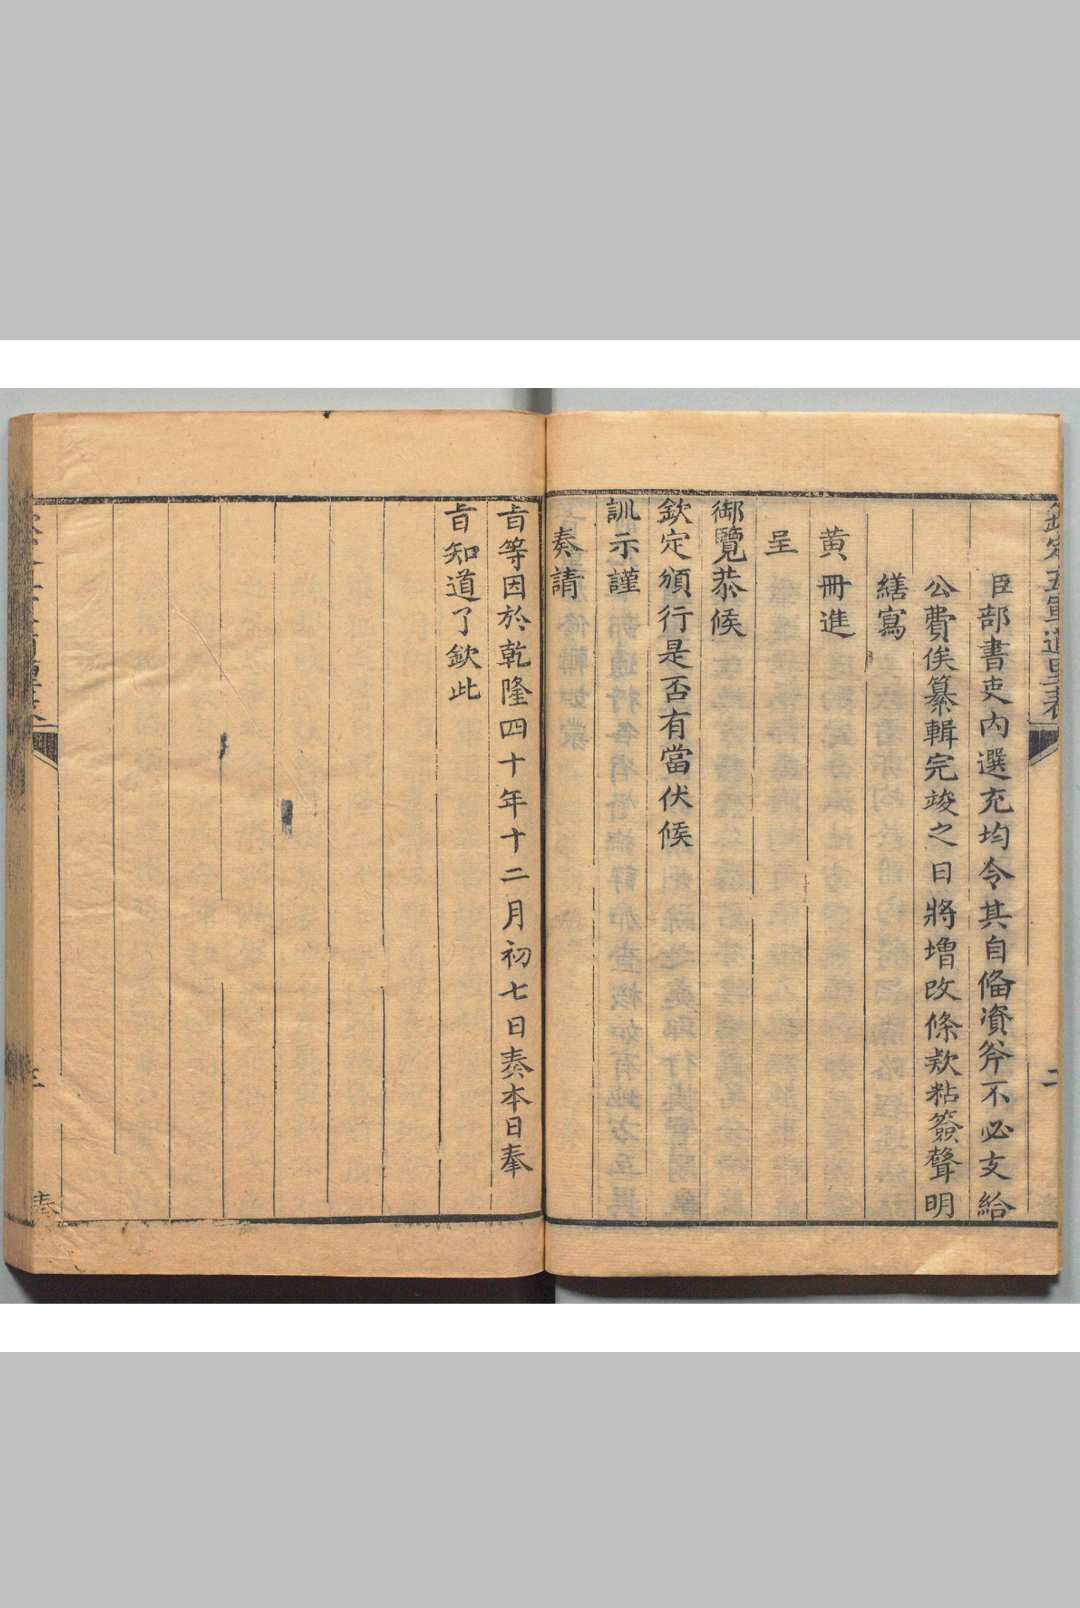 欽定五軍道里表
二
臣部書吏內選充均令其自備資斧不必支給
公費俟纂輯完竣之日將增改條欵粘簽聲明
繕寫
黄冊進
呈
御覽恭候
欽定頒行是否有當伏候
訓示謹
奏請
旨等因於乾隆四十年十二月初七日奏本日奉
旨知道了欽此